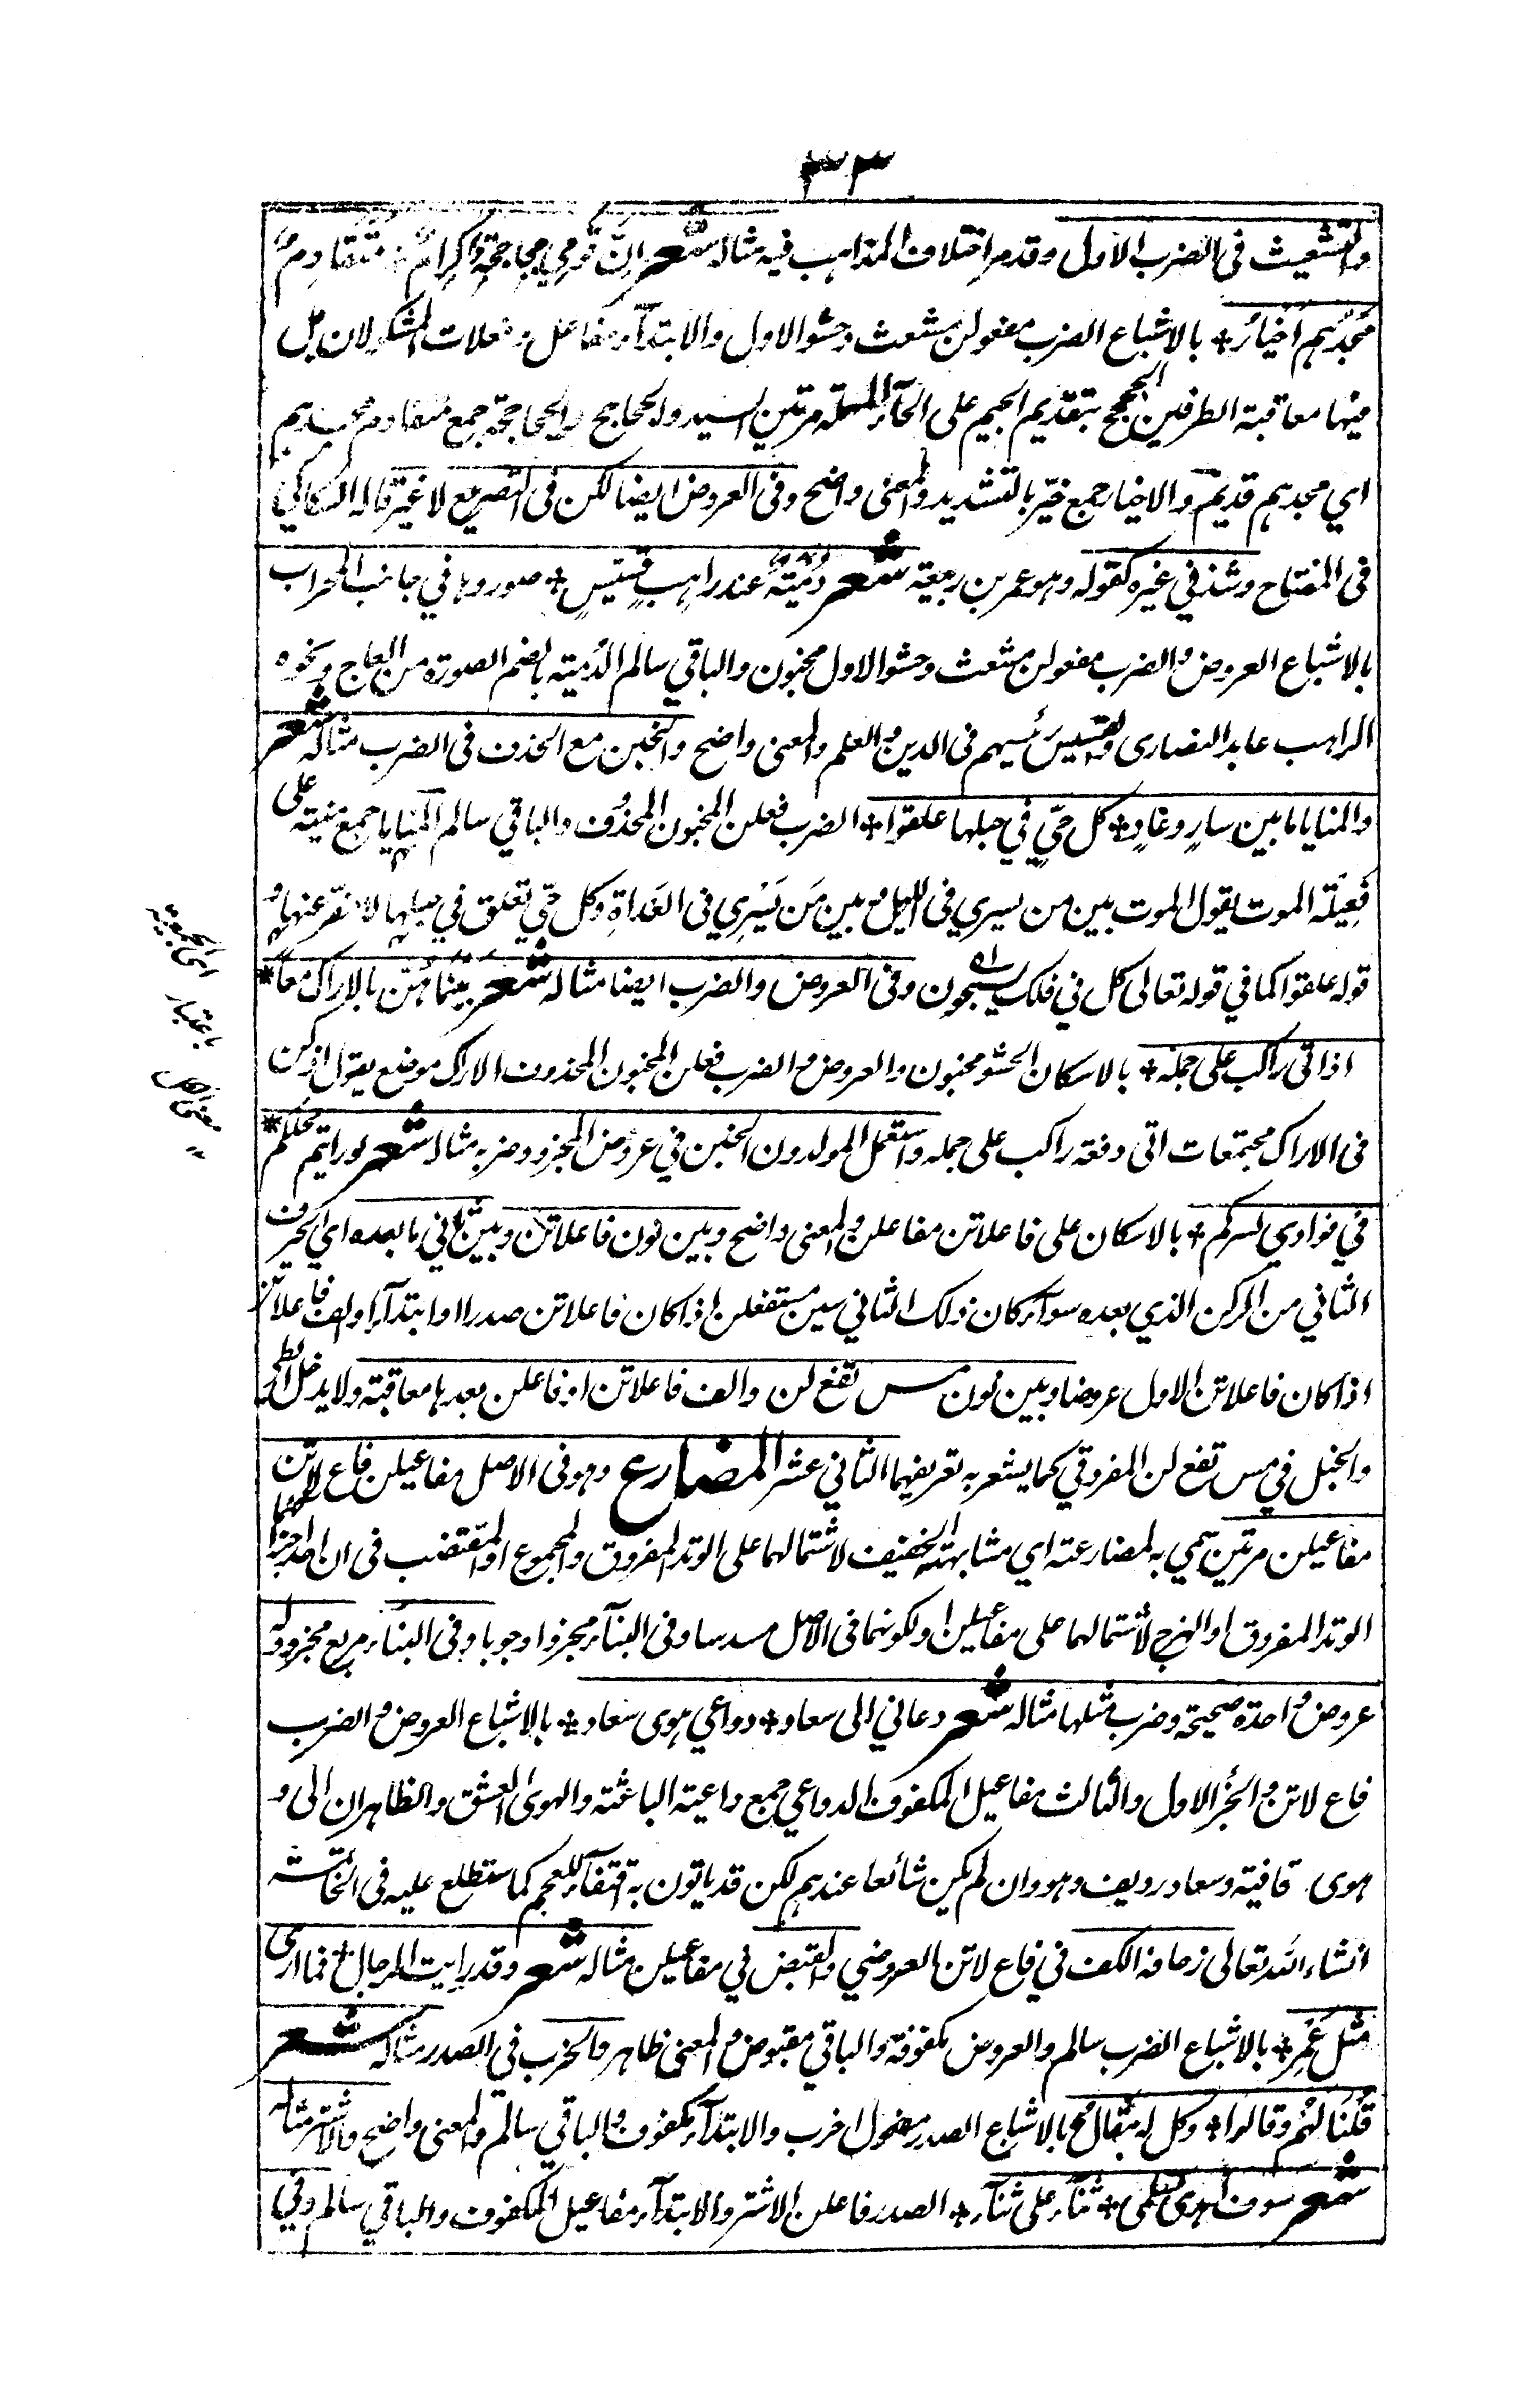 ٣٣
والتشعيث فى الضرب الاول وقد مر اختلاف المذاهب فيه مثاله شعر اِنّ قومي جحاجحةٌ كرامٌ ؞ مُتَقادِمٌ
مَجدُهم اَخيارُ ؞ بالاشباع الضرب مفعولن مشعث وحشو الاول والابتدآء مفاعل وفعلات المشكولان بل
فيها معاقبة الطرفين الجحجح بتقديم الجيم على الحآء المهملة مرتين السيد والجحاجح والجحاجحة جمع متقادم مجدهم
اي مجدهم قديم والاخيار جمع خيّر بالتشديد والمعنى واضح وفى العروض ايضا لكن فى التصريع لا غير قاله السكاكي
فى المفتاح وشذ في غيره كقوله وهو عمر بن ربيعة شعر دُميَةٌ عند راهبٍ قسيسٍ ؞ صوروها في جانب المحراب
بالاشباع العروض والضرب مفعولن مشعث وحشو الاول مخبون والباقي سالم الدُمية بالضم الصورة من العاج ونحوه
الراهب عابد النصارى والقسيس رئيسهم فى الدين والعلم والمعنى واضح والخبن مع الحذف فى الضرب مثاله شعر
والمنايا ما بين سارٍ وغادٍ ؞ كل حيّ في حبلها علقوا ؞ الضرب فعلن المخبون المحذوف والباقي سالم المنايا جمع منية على
فَعِيلَة الموت يقول الموت بين من يسري فى الليل وبين مَن يَسْرِي فى الغداة وكل حيّ تعلق في حبلها لا مفر عنها و
قوله علقوا كما في قوله تعالى كل في فلك يسبحون وفى العروض والضرب ايضا مثاله شعر بينما هُنّ بالاراك معا ؞
اذ اتى راكب على جمله ؞ بالاسكان الحشو مخبون والعروض والضرب فعلن المخبون المحذوف الاراك موضع يقول اذ كن
فى الاراك مجتمعات اتى دفعة راكب على جمله واستعمل المولدون الخبن في عروض المجزو وضربه مثاله شعر لو رايتم محلكم ؞
في فوادي لسركم ؞ بالاسكان على فاعلاتن مفاعلن والمعنى واضح وبين نون فاعلاتن وبين ثاني ما بعده اي الحرف
الثاني من الركن الذي بعده سوآء كان ذلك الثاني سين مستفعلن اذا كان فاعلاتن صدرا او ابتدآء او الف فاعلاتن
اذا كان فاعلاتن الاول عروضا وبين نون مس تفع لن والف فاعلاتن او فاعلن بعدها معاقبة ولا يدخل الطي
والخبل في مس تفع لن المفروقي كما يشعر به تعريفهما الثاني عشر المضارع وهو فى الاصل مفاعيلن فاع لاتن
مفاعيلن مرتين سمي به لمضارعته اي مشابهته الخفيف لاشتمالهما على الوتد المفروق والمجموع او المقتضب فى ان احد اجزائهما
الوتد المفروق او الهزج لاشتمالهما على مفاعيلن ولكونهما فى الاصل مسدسا وفى البنآء مجزوا وجوبا وفى البنآء مربع مجزو وله
عروض واحدة صحيحة وضرب مثلها مثاله شعر دعاني الى سعاد ؞ دواعي هوى سعاد ؞ بالاشباع العروض والضرب
فاع لاتن والجزء الاول والثالث مفاعيل المكفوف الدواعي جمع داعية الباعثة والهوى العشق والظاهر ان الى و
هوى قافية وسعاد رديف وهو وان لم يكن شائعا عندهم لكن قد ياتون به اقتفآء للعجم كما ستطلع عليه فى الخاتمة
انشاء الله تعالى زحافه الكف في فاع لاتن العروضي والقبض في مفاعيلن مثاله شعر وقد رايت الرجال ؞ فما ارى
مثل عَمِر ؞ بالاشباع الضرب سالم والعروض مكفوفة والباقي مقبوض والمعنى ظاهر والخرب فى الصدر مثاله شعر
قُلنا لهُم وقالوا ؞ وكل له مقال ؞ بالاشباع الصدر مفعول اخرب والابتدآء مكفوف والباقي سالم والمعنى واضح والشتر مثاله
شعر سوف اهدي لسلمى ؞ ثنآء على ثنآء ؞ الصدر فاعلن الاشتر والابتدآء مفاعيل المكفوف والباقي سالم وفي
اى الجمعية
باعتبار
معنى الكل